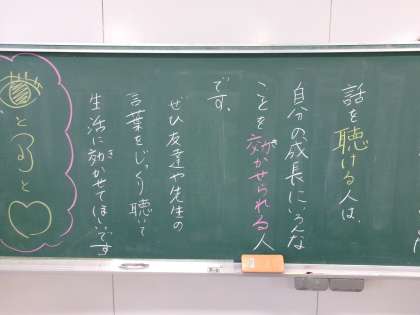 話を聴ける人は、
自分の成長にいろんな
ことを効かせられる人
です。
ぜひ友達や先生の
言葉をじっくり聴いて
生活に効かせてほしいです
と
と